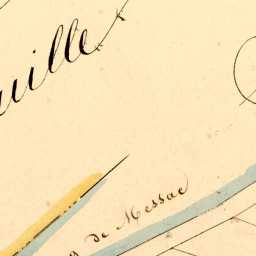 uille
de Messac